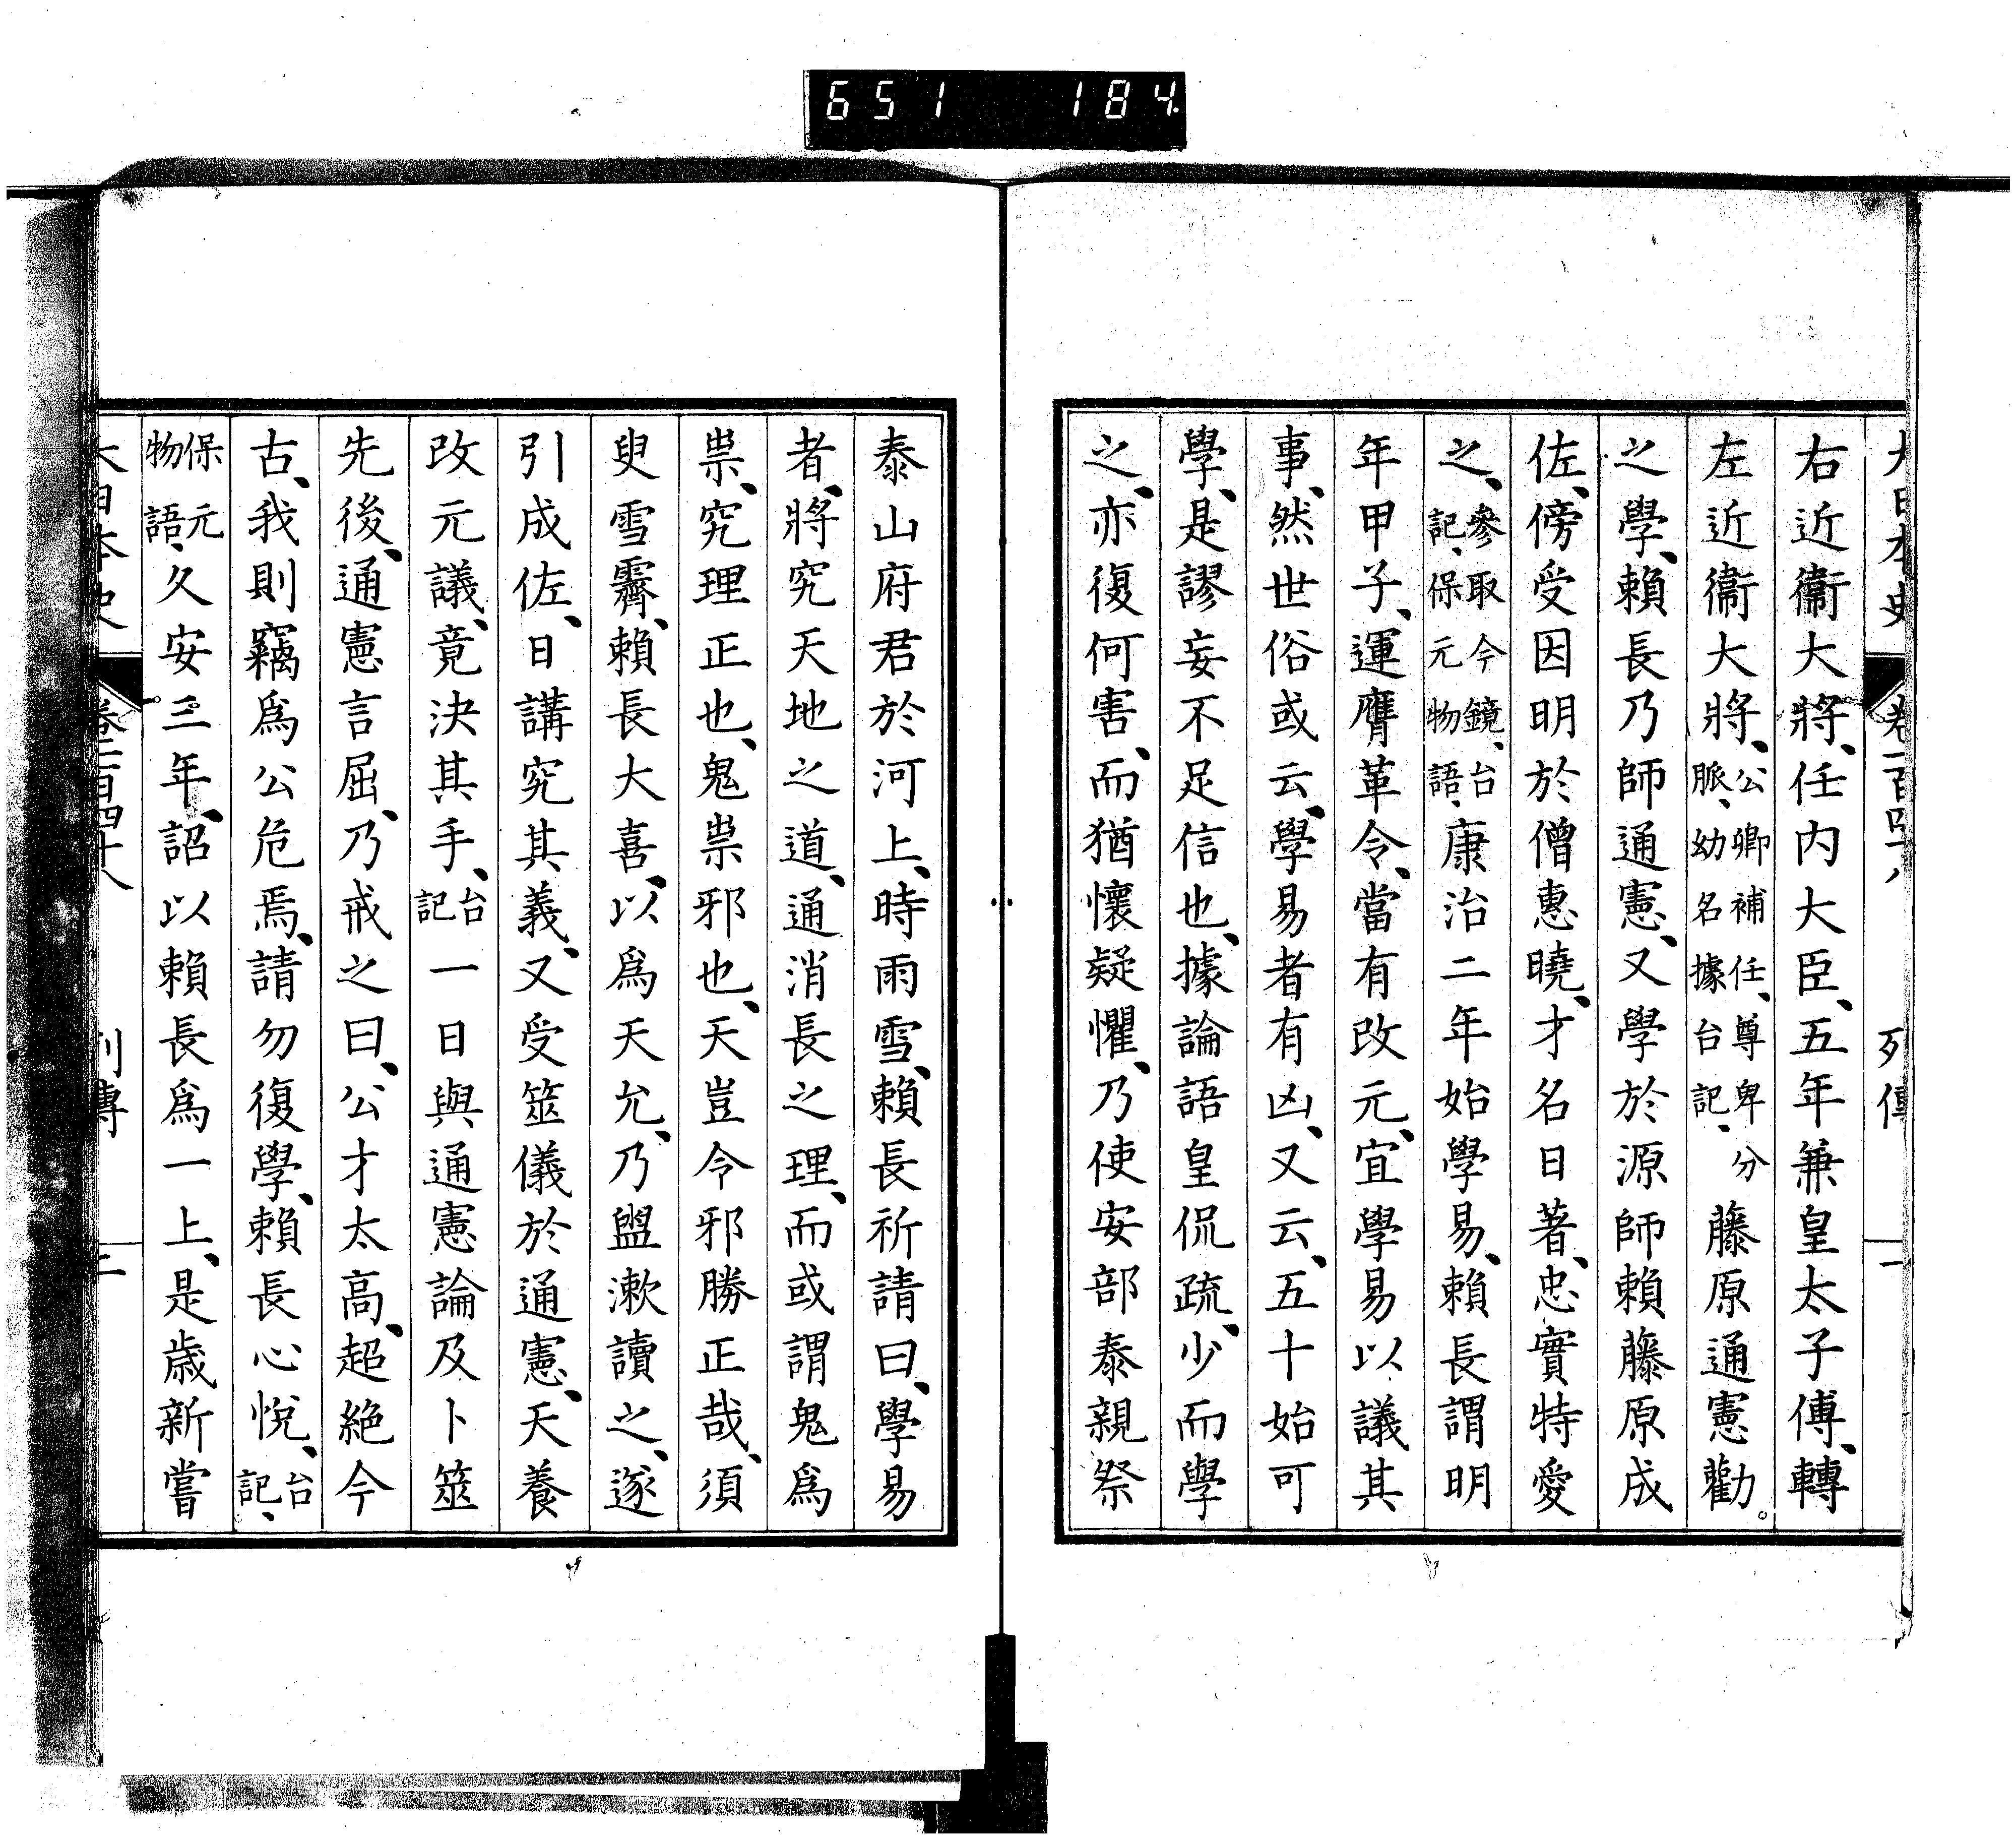 651 184
大日本史 卷一百四十八 列傳 二
右近衞大將、任内大臣、五年兼皇太子傅、轉
左近衞大將、公卿補任、尊卑分脈、幼名據台記、藤原通憲勸
之學、賴長乃師通憲、又學於源師賴藤原成
佐、傍受因明於僧惠曉、才名日著、忠實特愛
之、參取今鏡、台記、保元物語、康治二年始學易、賴長謂明
年甲子、運膺革令、當有改元、宜學易以議其
事、然世俗或云、學易者有凶、又云、五十始可
學、是謬妄不足信也、據論語皇侃疏、少而學
之、亦復何害、而猶懷疑懼、乃使安部泰親祭
泰山府君於河上、時雨雪、賴長祈請曰、學易
者、將究天地之道、通消長之理、而或謂鬼爲
祟、究理正也、鬼祟邪也、天豈令邪勝正哉、須
臾雪霽、賴長大喜、以爲天允、乃盥漱讀之、遂
引成佐、日講究其義、又受筮儀於通憲、天養
改元議、竟決其手、台記一日與通憲論及卜筮
先後、通憲言屈、乃戒之曰、公才太高、超絶今
古、我則竊爲公危焉、請勿復學、賴長心悅、台記、
保元物語、久安三年、詔以賴長爲一上、是歲新嘗
大日本史 卷一百四十八 列傳 三